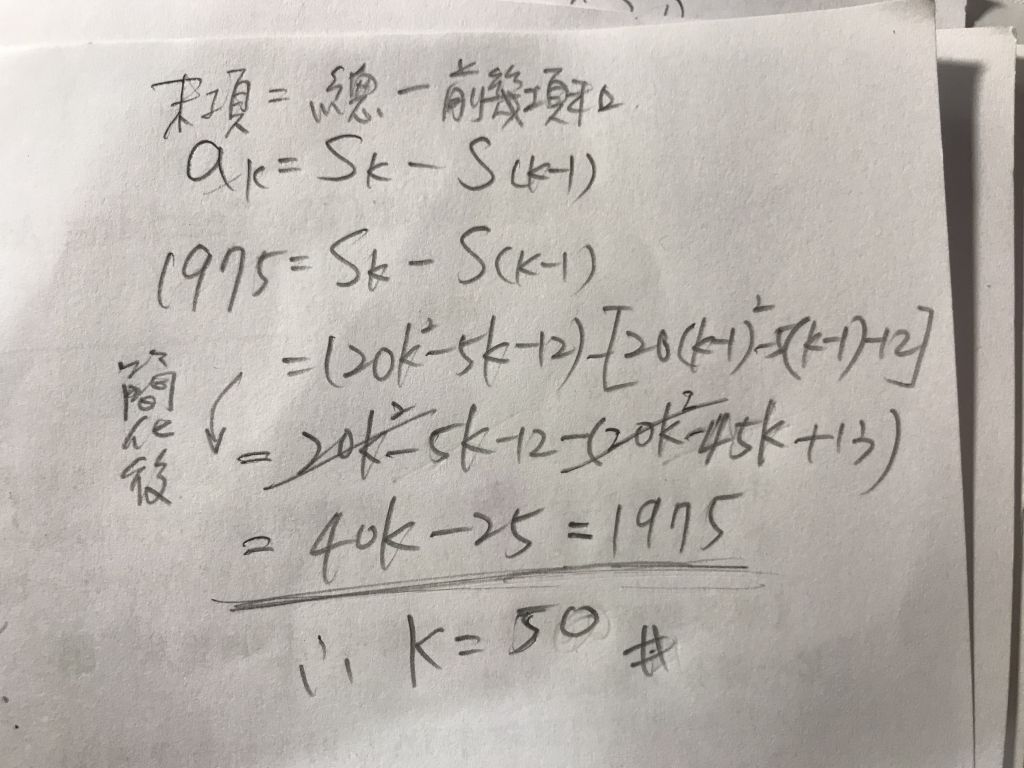 末項 = 總 - 前幾項和
aₖ = Sₖ - S(k-1)
1975 = Sₖ - S(k-1)
= (20k²-5k-12)-[20(k-1)²-5(k-1)-12]
簡化後
= 20k²-5k-12-(20k²-45k+13)
= 40k-25 = 1975
∴ k = 50 #